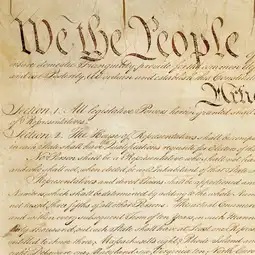 We the People
insure domestic Tranquility, provide for the common
and our Posterity, do ordain and establish this
Section. 1. All legislative Powers herein granted shall
of Representatives.
Section. 2. The House of Representatives shall be
in each State shall have Qualifications requisite for Electors of the
No Person shall be a Representative who shall not
and who shall not, when elected, be an Inhabitant of that State
Representatives and direct Taxes shall be apportioned
Numbers, which shall be determined by adding to the whole
not taxed, three fifths of all other Persons. The actual
and within every subsequent Term of ten Years, in such Manner
thirty Thousand, but each State shall have at Least one
entitled to chuse three, Massachusetts eight, Rhode Island and
eight, Delaware one, Maryland six, Virginia ten, North